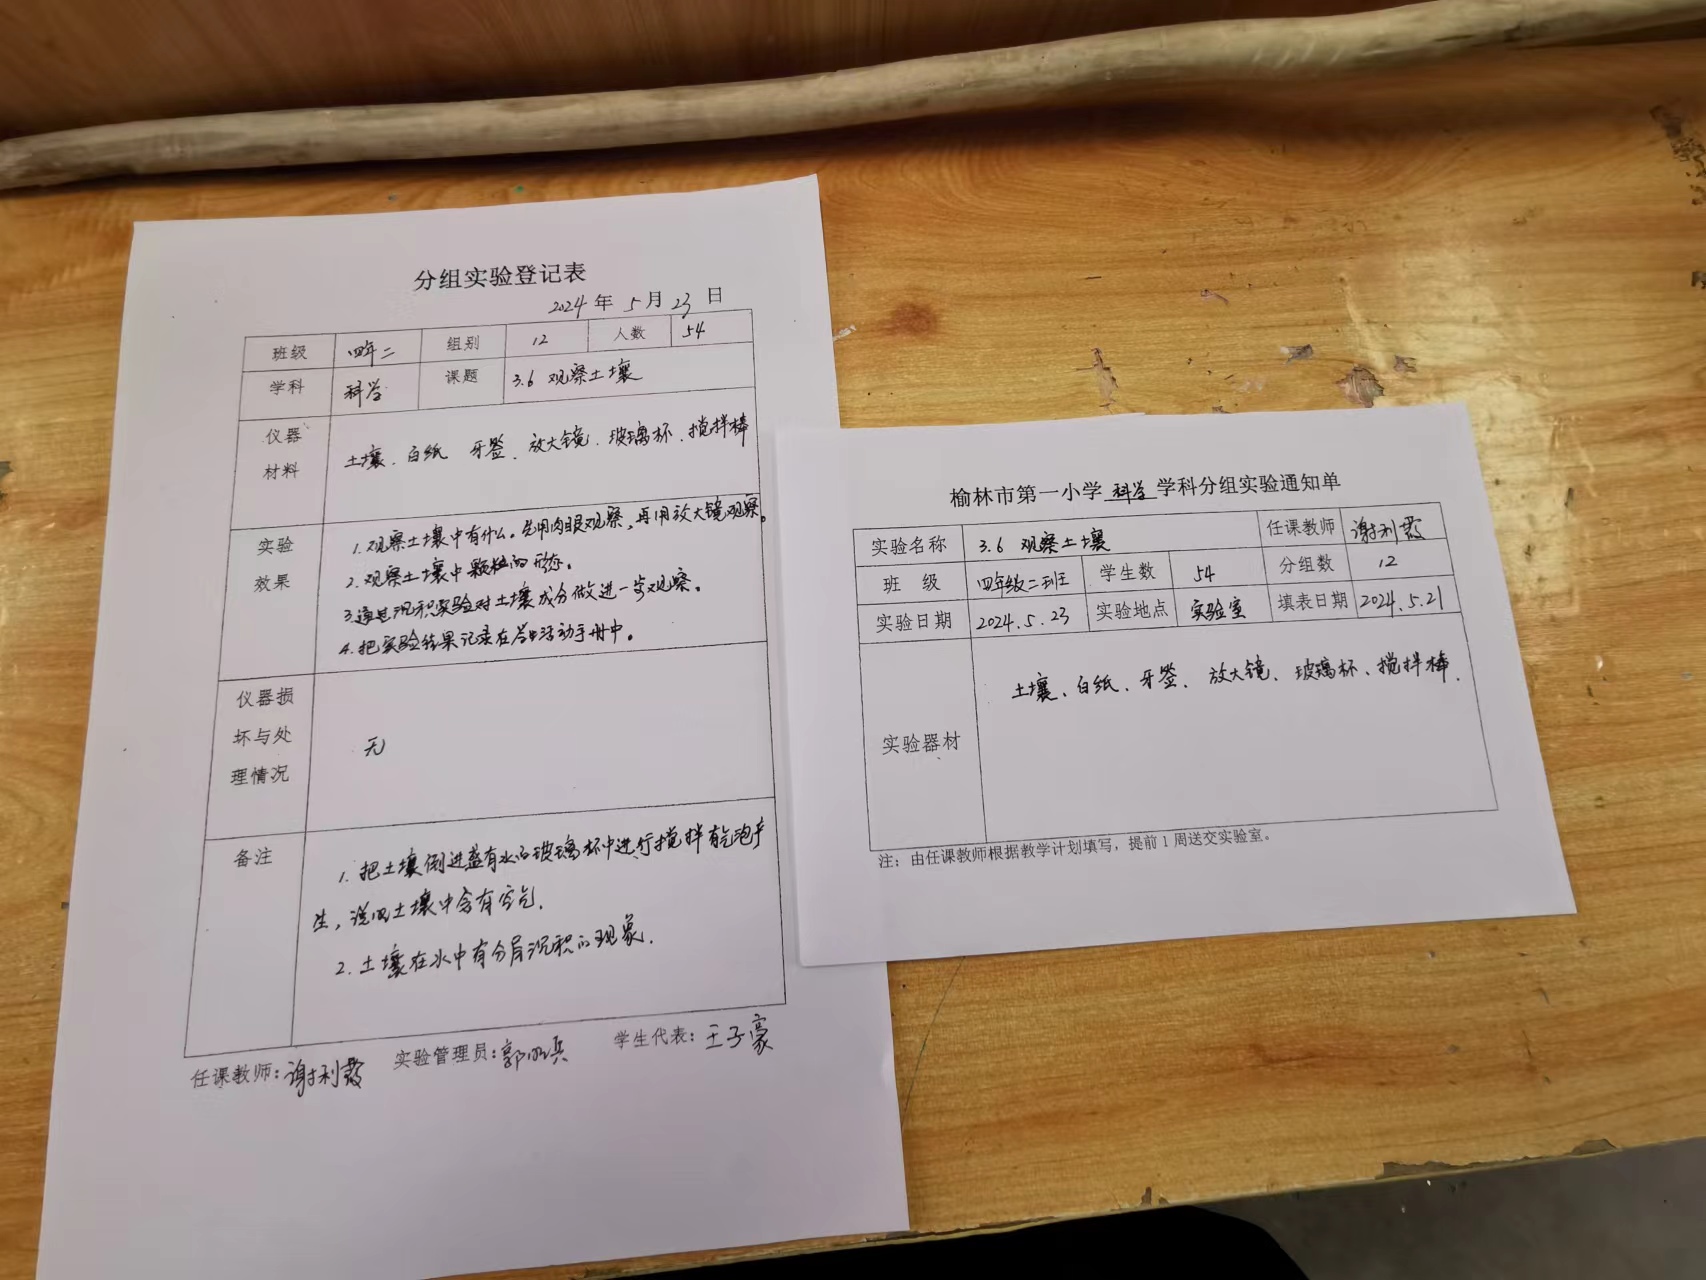 分组实验登记表
2024年5月23日
班级 四年二 组别 12 人数 54
学科 科学 课题 3.6 观察土壤
仪器
材料
土壤、白纸 牙签、放大镜、玻璃杯、搅拌棒
实验
效果
1.观察土壤中有什么。先用肉眼观察,再用放大镜观察。
2.观察土壤中颗粒的形态。
3.通过沉积实验对土壤成分做进一步观察。
4.把实验结果记录在学生活动手册中。
仪器损
坏与处
理情况
无
备注
1.把土壤倒进盛有水的玻璃杯中进行搅拌有气泡产
生,说明土壤中含有空气.
2.土壤在水中有分层沉积的现象.
任课教师:谢利霞 实验管理员:郭 兵 学生代表:王子豪
榆林市第一小学 科学 学科分组实验通知单
实验名称 3.6 观察土壤 任课教师 谢利霞
班 级 四年级二班 学生数 54 分组数 12
实验日期 2024.5.23 实验地点 实验室 填表日期 2024.5.21
实验器材
土壤、白纸、牙签、放大镜、玻璃杯、搅拌棒.
注:由任课教师根据教学计划填写,提前1周送交实验室。